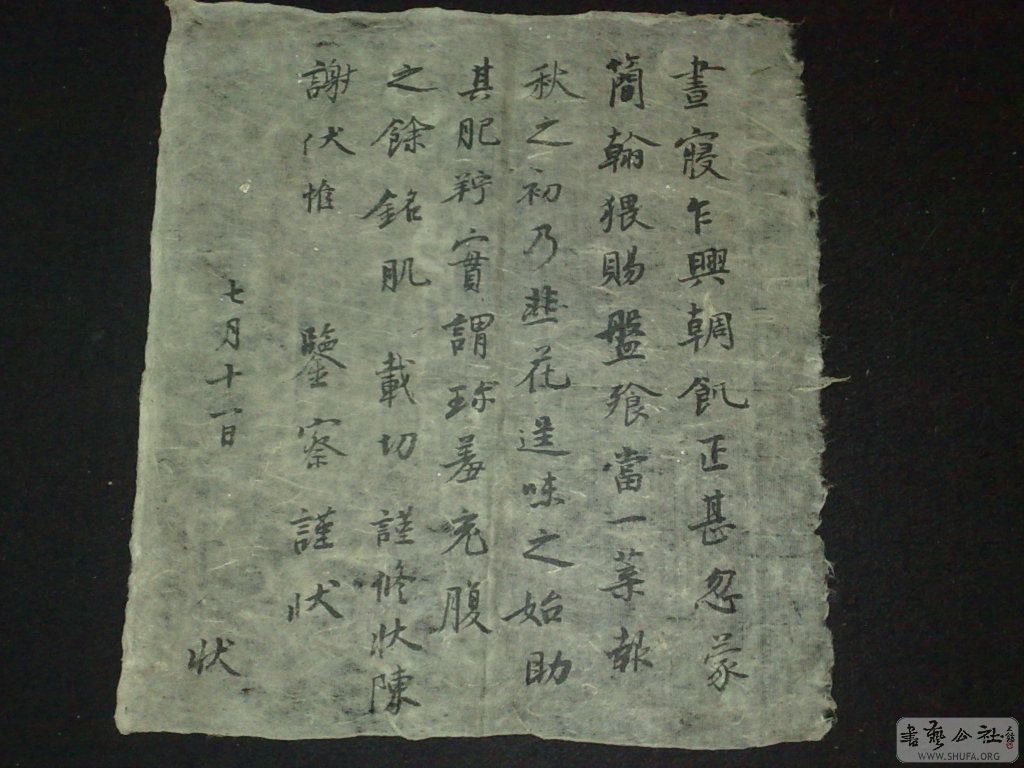 晝寢乍興朝飢正甚忽蒙
簡翰猥賜盤飧當一葉報
秋之初乃韭花逞味之始助
其肥羜實謂珍羞充腹
之餘銘肌載切謹修狀陳
謝伏惟鑒察謹狀
七月十一日
狀
書藝公社
WWW.SHUFA.ORG